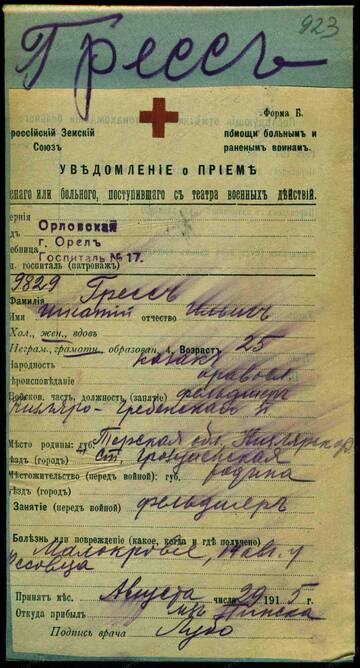 923
Грессъ
Форма Б.
ероссійскій Земскій
Союзъ
помощи больнымъ и
раненымъ воинамъ.
УВѢДОМЛЕНІЕ о ПРІЕМѢ
енаго или больного, поступившаго съ театра военныхъ дѣйствій.
ернія Орловская
г. Орелъ
ебница Госпиталь № 17.
госпиталь (патронажъ)
9829
Фамилія Грессъ
Имя Игнатій отчество Ильичъ
Хол., жен., вдовъ
Неграм., грамотн. образован. 4. Возрастъ 25
Народность казакъ
ѣроисповѣданіе правосл
Войсков. часть, должность (занятіе) фельдшеръ
Кизляро-Гребенского п
Мѣсто родины: губ. Терская обл.
ѣздъ (городъ) ст. Грозненская
Мѣстожительство (передъ войной): губ. родина
ѣздъ (городъ)
Занятіе (передъ войной) фельдшеръ
Болѣзнь или поврежденіе (какое, когда и гдѣ получено)
Малокровіе, 14 авг. у
Принятъ мѣс. Августа число 29 1915 г.
Откуда прибылъ изъ Пинска
Подпись врача